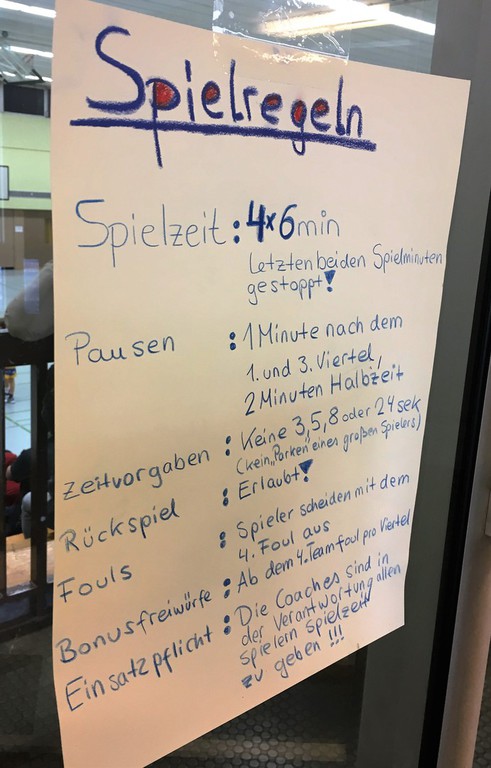 Spielregeln
Spielzeit : 4x6min
Letzten beiden Spielminuten
gestoppt!
Pausen : 1 Minute nach dem
1. und 3. Viertel,
2 Minuten Halbzeit
Zeitvorgaben : Keine 3,5,8 oder 24 sek
(kein "Parken" eines großen Spielers)
Rückspiel : Erlaubt!
Fouls : Spieler scheiden mit dem
4. Foul aus
Bonusfreiwürfe : Ab dem 4. Teamfoul pro Viertel
Einsatzpflicht : Die Coaches sind in
der Verantwortung allen
Spielern Spielzeit
zu geben !!!